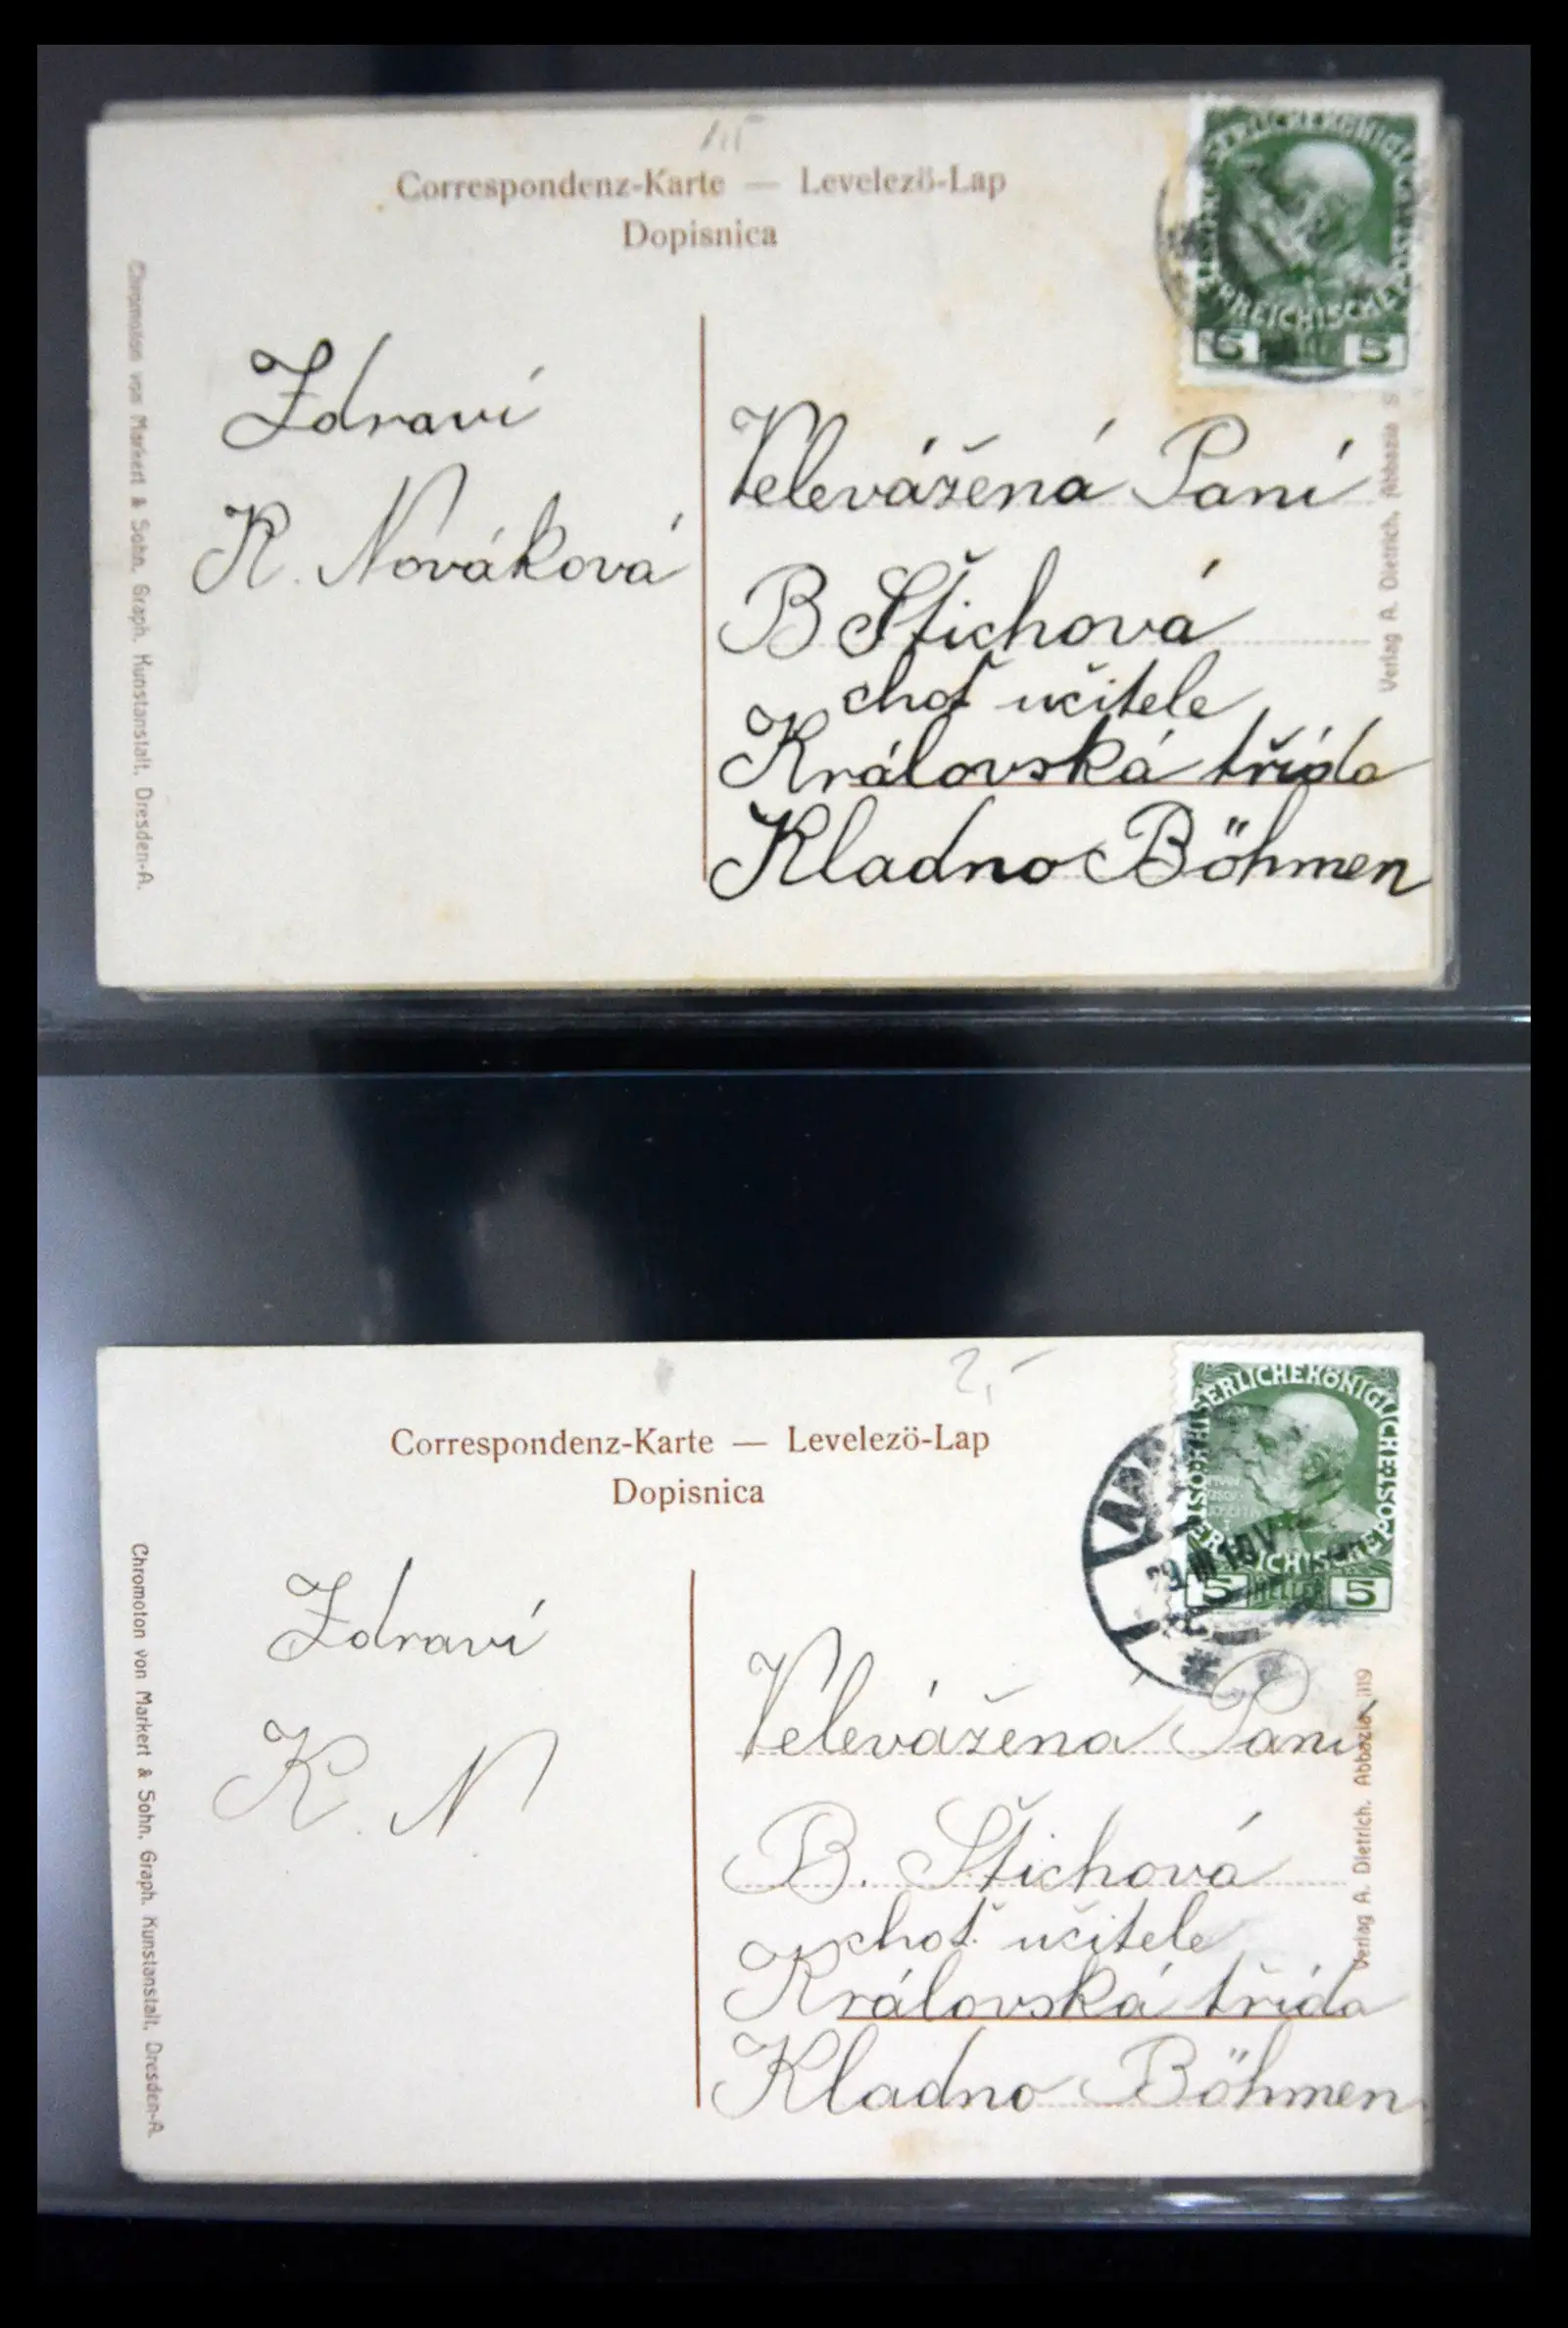 1.5
Correspondenz-Karte — Levelező-Lap
Dopisnica
ÖSTERREICHISCHE POST
KAISERLICHE KÖNIGLICHE
5 5
Zdraví
K. Nováková
Velevážená Paní
B Štichová
choť učitele
Královská třída
Kladno Böhmen
Chromoton von Markert & Sohn, Graph. Kunstanstalt, Dresden-A.
Verlag A. Dietrich, Abbazia
2,–
Correspondenz-Karte — Levelezö-Lap
Dopisnica
KAISERLICHE KÖNIGLICHE
ÖSTERREICHISCHE POST
5 HELLER 5
Zdraví
K. N
Velevážena Paní
B. Štichová
choť učitele
Královská třída
Kladno Böhmen
Chromoton von Markert & Sohn, Graph. Kunstanstalt, Dresden-A.
Verlag A. Dietrich, Abbazia 1119